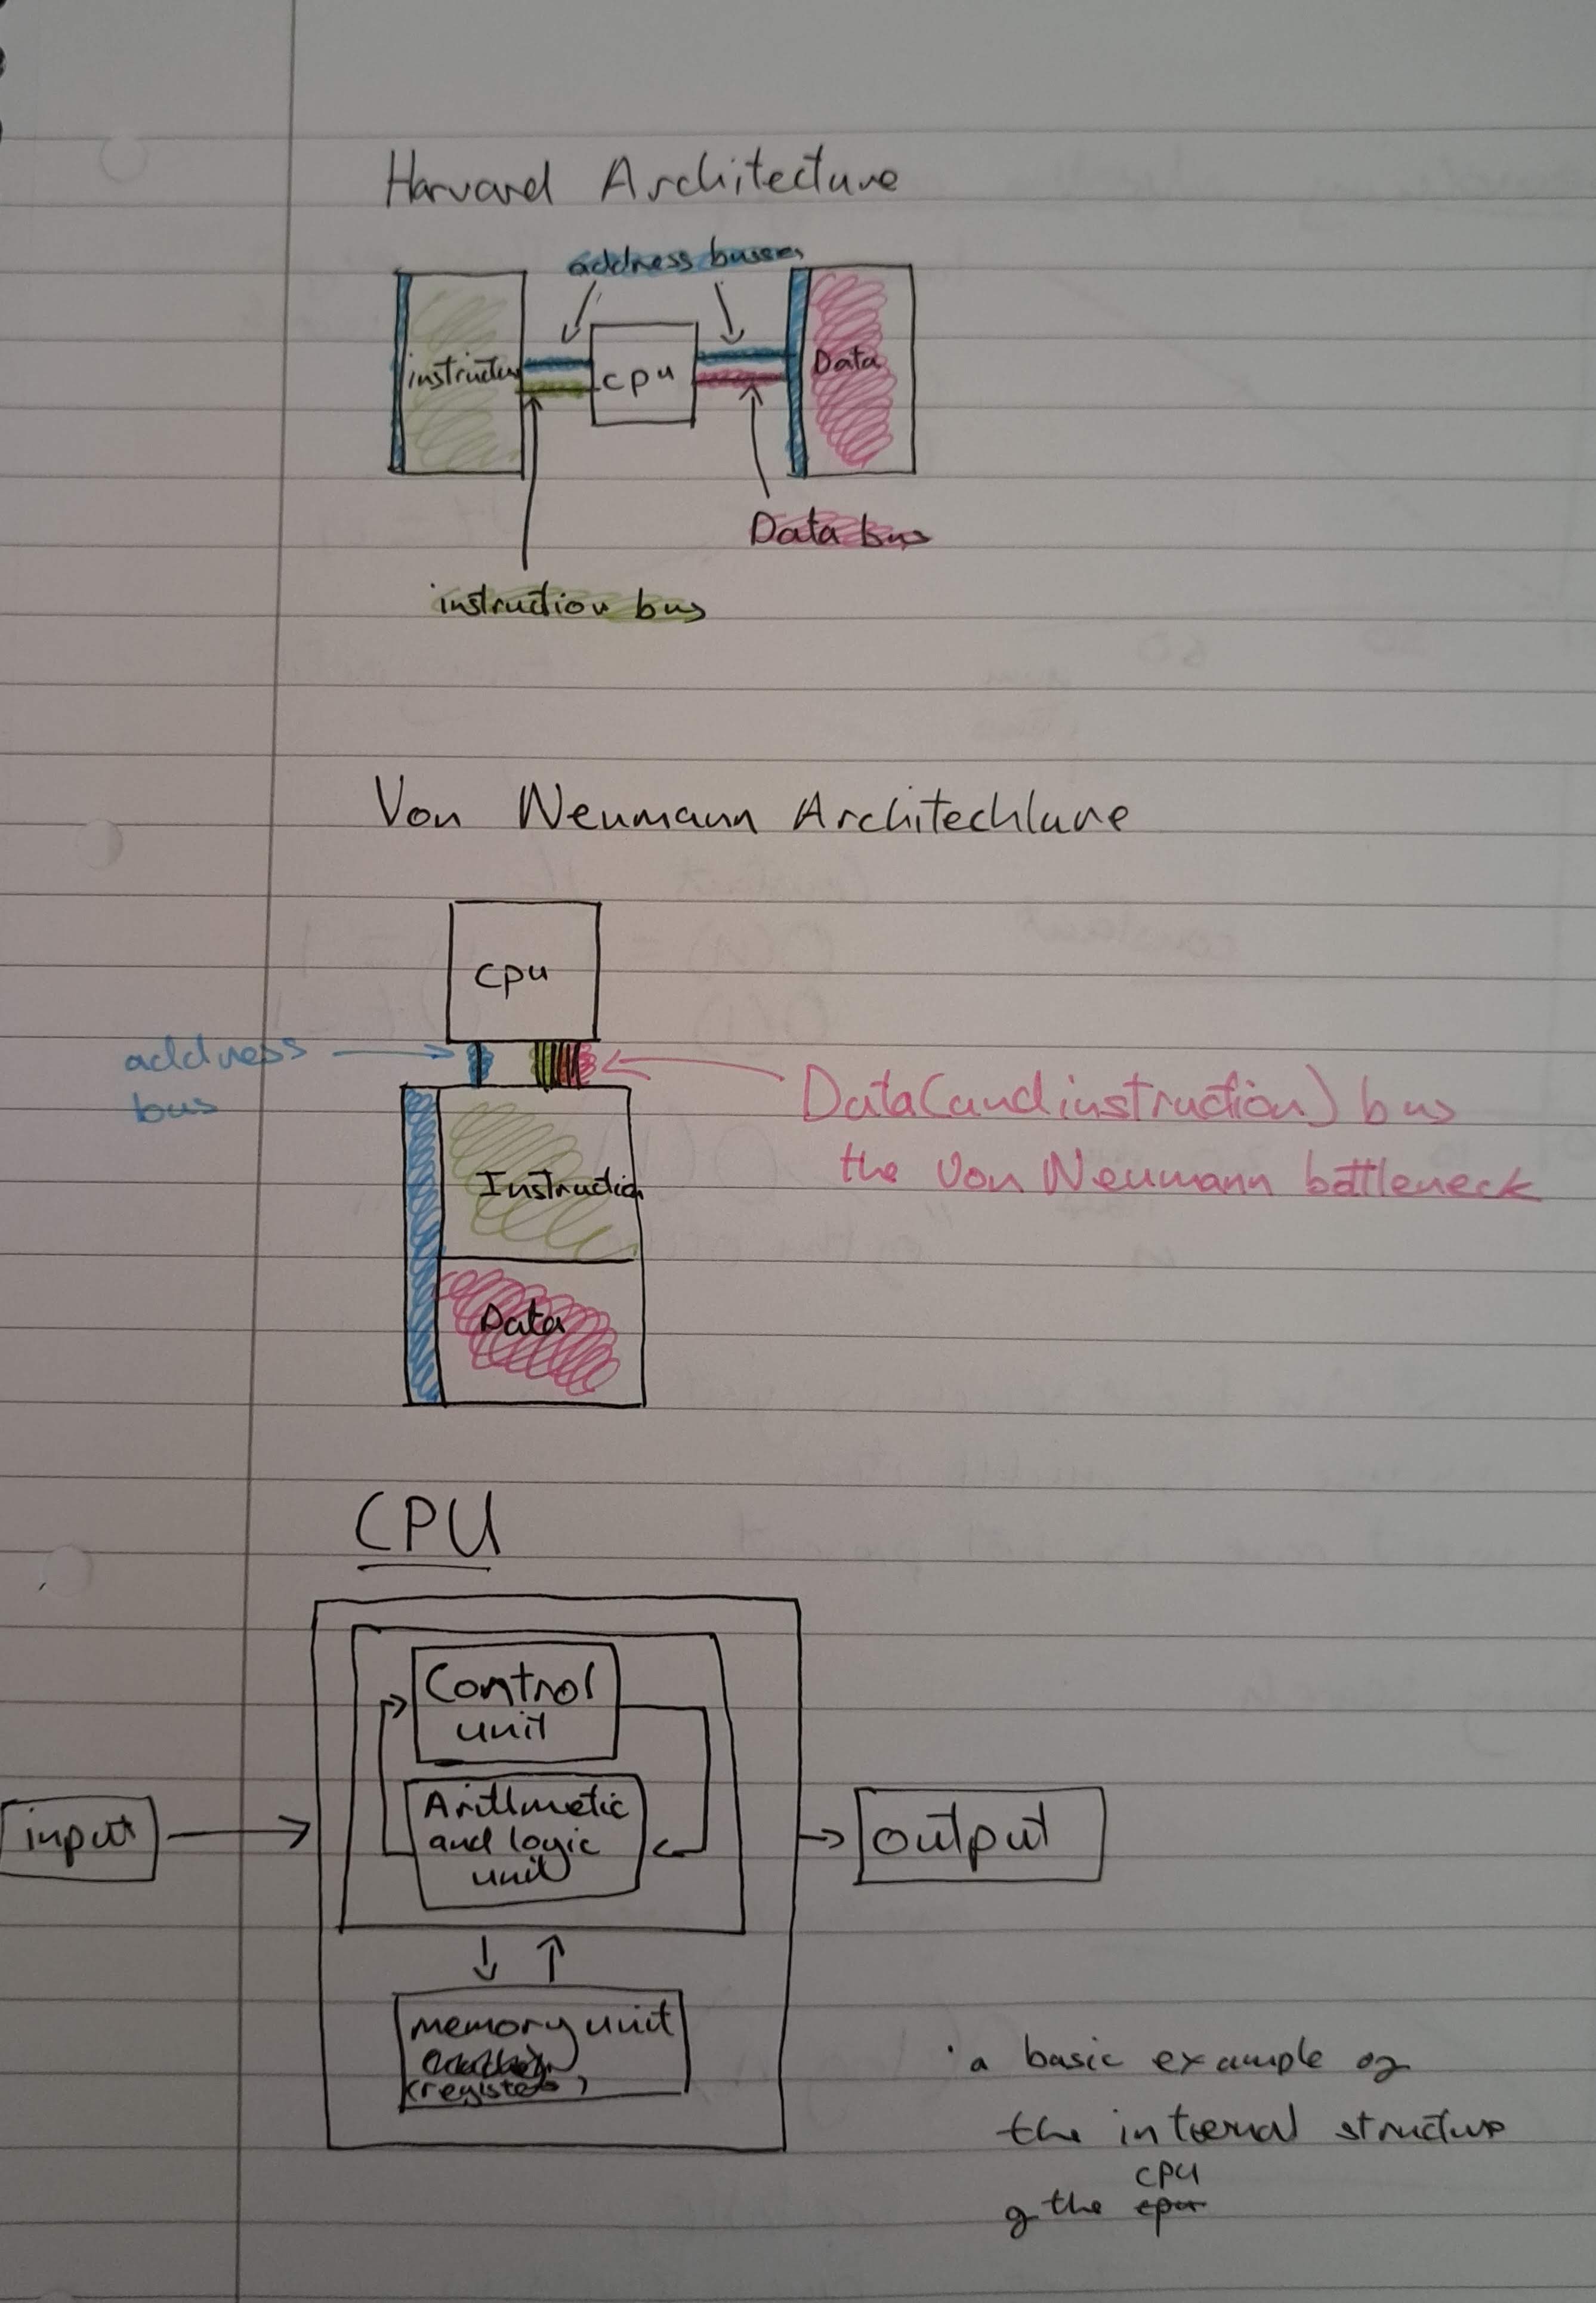 Harvard Architecture
address busses
instruction
cpu
Data
Data bus
instruction bus
Von Neumann Architechture
cpu
address
bus
Data(and instruction) bus
the Von Neumann bottleneck
Instruction
Data
CPU
Control
unit
Arithmetic
and logic
unit
input
output
memory unit
(registers)
a basic example of
the internal structure
cpu
of the cpu